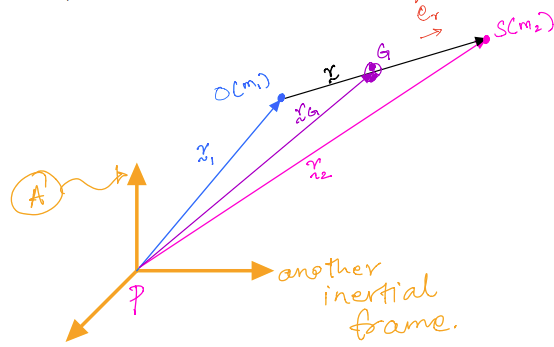 e_r
S(m₂)
G
r
O(m₁)
r_G
r_1
r_2
A
another
inertial
frame.
P